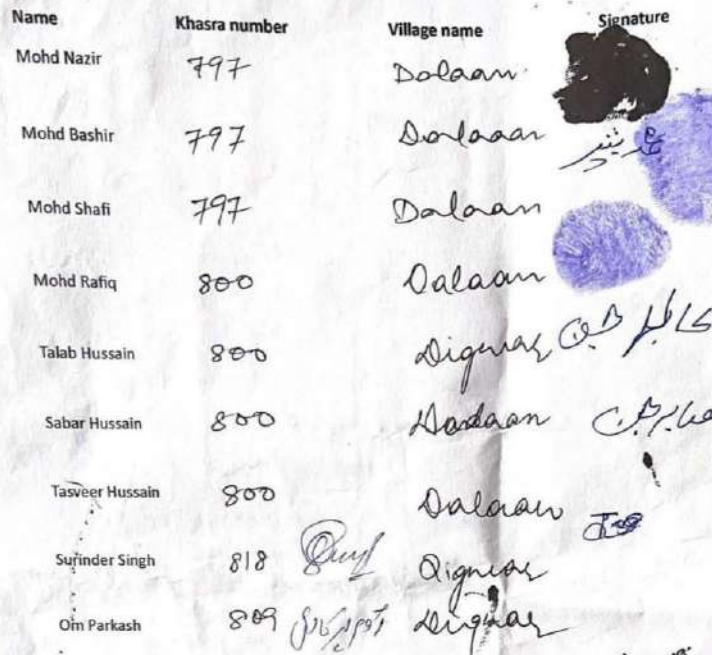 Name Khasra number Village name Signature
Mohd Nazir 797 Dalaan
Mohd Bashir 797 Dalaaan محمد بشیر
Mohd Shafi 797 Dalaan
Mohd Rafiq 800 Dalaan
Talab Hussain 800 Digwar طالب حسین
Sabar Hussain 800 صابر حسین
Tasveer Hussain 800 Dalaan
Surinder Singh 818 Digwar
Om Parkash 809 Digwar